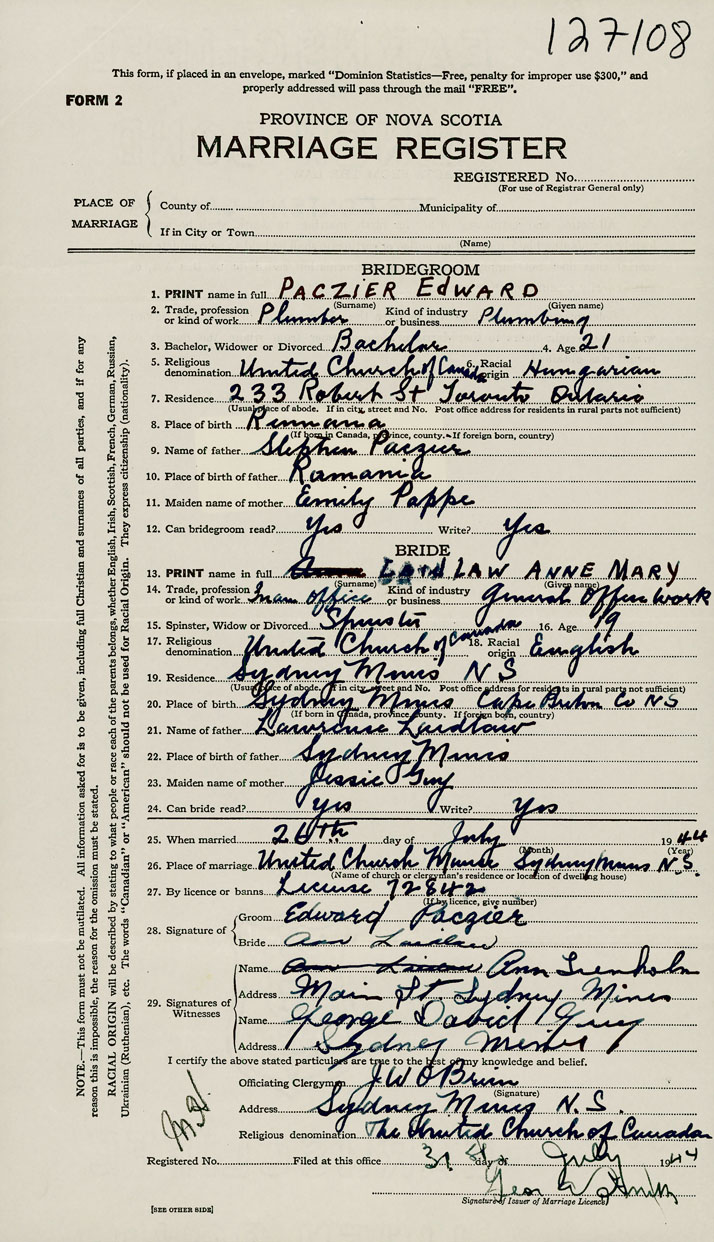 127108
This form, if placed in an envelope, marked "Dominion Statistics—Free, penalty for improper use $300," and
properly addressed will pass through the mail "FREE".
FORM 2
PROVINCE OF NOVA SCOTIA
MARRIAGE REGISTER
REGISTERED No.
(For use of Registrar General only)
PLACE OF MARRIAGE
County of Municipality of
If in City or Town
(Name)
BRIDEGROOM
1. PRINT name in full PACZIER EDWARD
(Surname) (Given name)
2. Trade, profession or kind of work Plumber Kind of industry or business Plumbing
3. Bachelor, Widower or Divorced Bachelor 4. Age 21
5. Religious denomination United Church of Canada 6. Racial origin Hungarian
7. Residence 233 Robert St Toronto Ontario
(Usual place of abode. If in city, street and No. Post office address for residents in rural parts not sufficient)
8. Place of birth
(If born in Canada, province, county. If foreign born, country)
9. Name of father Stephen Paczier
10. Place of birth of father Romania
11. Maiden name of mother Emily Pappe
12. Can bridegroom read? Yes Write? Yes
BRIDE
13. PRINT name in full LAIDLAW ANNE MARY
(Surname) (Given name)
14. Trade, profession or kind of work In an office Kind of industry or business General Office Work
15. Spinster, Widow or Divorced Spinster 16. Age 19
17. Religious denomination United Church of Canada 18. Racial origin English
19. Residence Sydney Mines N S
(Usual place of abode. If in city, street and No. Post office address for residents in rural parts not sufficient)
20. Place of birth Sydney Mines Cape Breton Co NS
(If born in Canada, province, county. If foreign born, country)
21. Name of father Lawrence Laidlaw
22. Place of birth of father Sydney Mines
23. Maiden name of mother Jessie Guy
24. Can bride read? yes Write? Yes
25. When married 26th day of July 1944
(Month) (Year)
26. Place of marriage United Church Manse Sydney Mines N.S.
(Name of church or clergyman's residence or location of dwelling house)
27. By licence or banns License 72842
(If by licence, give number)
28. Signature of
Groom Edward Paczier
Bride Ann Laidlaw
29. Signatures of Witnesses
Name Ann Trenholm
Address Main St. Sydney Mines
Name George David Guy
Address Sydney Mines
I certify the above stated particulars are true to the best of my knowledge and belief.
Officiating Clergyman J W O'Brien
(Signature)
Address Sydney Mines N.S.
Religious denomination The United Church of Canada
Registered No. Filed at this office 31st day of July 1944
Signature of Issuer of Marriage Licence
[SEE OTHER SIDE]
NOTE.—This form must not be mutilated. All information asked for is to be given, including full Christian and surnames of all parties, and if for any
reason this is impossible, the reason for the omission must be stated.
RACIAL ORIGIN will be described by stating to what people or race each of the parents belongs, whether English, Irish, Scottish, French, German, Russian,
Ukrainian (Ruthenian), etc. The words "Canadian" or "American" should not be used for Racial Origin. They express citizenship (nationality).